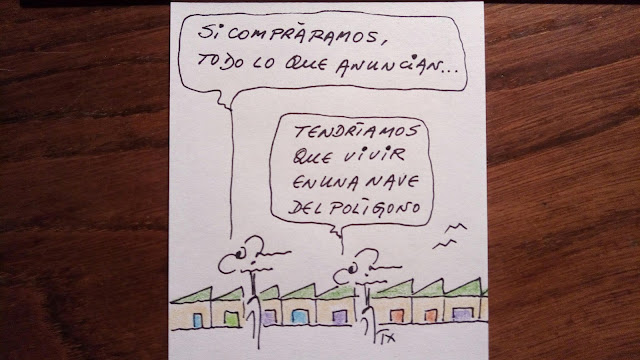 SI COMPRÁRAMOS,
TODO LO QUE ANUNCIAN...
TENDRÍAMOS
QUE VIVIR
EN UNA NAVE
DEL POLÍGONO